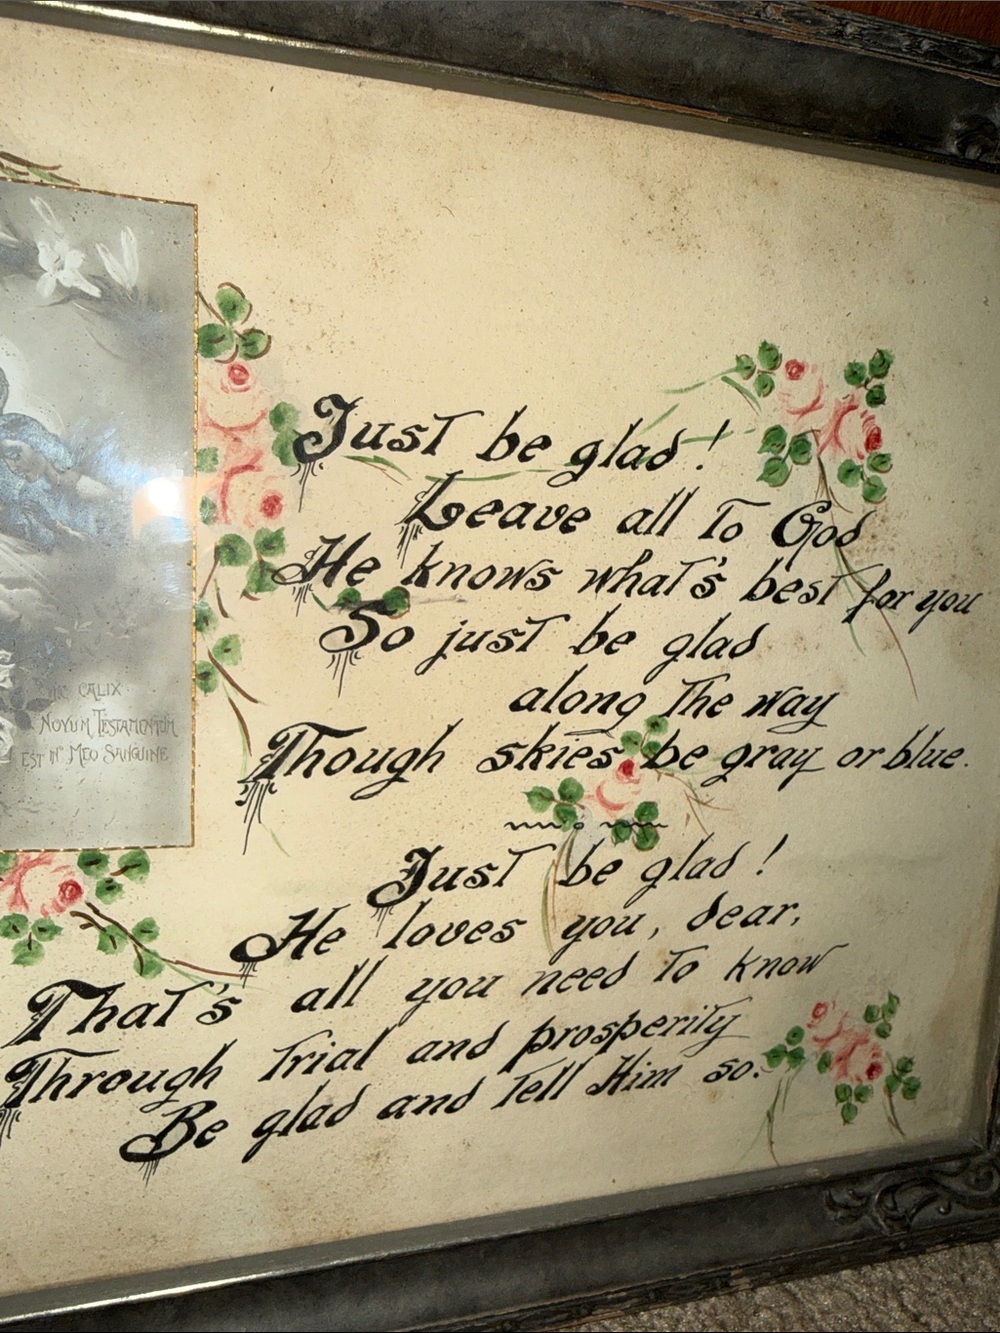 Just be glad!
Leave all to God
He knows what's best for you
So just be glad
along the way
Though skies be gray or blue.
Just be glad!
He loves you, dear,
That's all you need to know
Through trial and prosperity
Be glad and tell Him so.
CALIX
NOVUM TESTAMENTUM
EST IN MEO SANGUINE